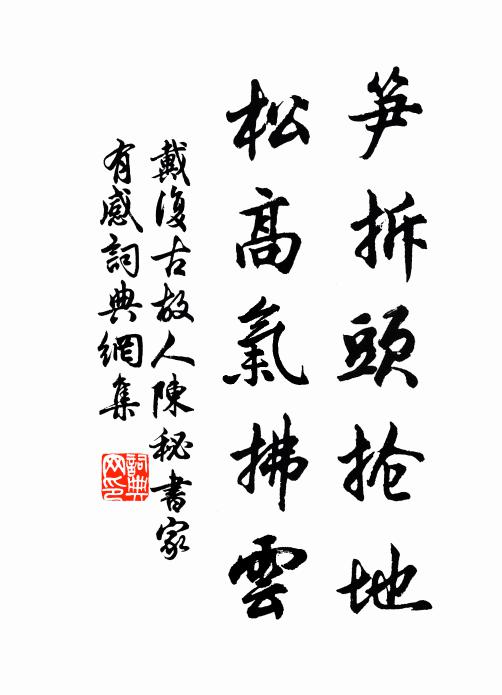 笋拆頭搶地
松高氣拂雲
戴復古故人陳秘書家
有感詞典網集
詞典网印